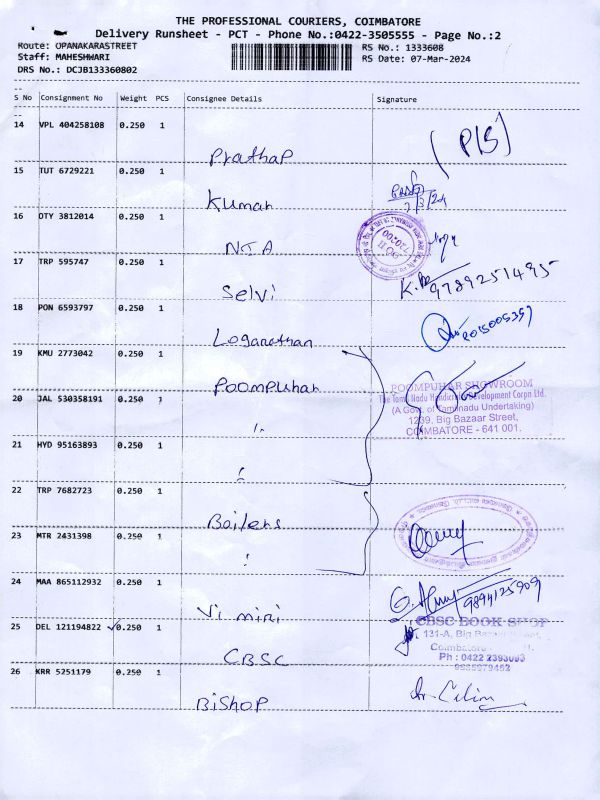 THE PROFESSIONAL COURIERS, COIMBATORE
Delivery Runsheet - PCT - Phone No.:0422-3505555 - Page No.:2
Route: OPANAKARASTREET
RS No.: 1333608
Staff: MAHESHWARI
RS Date: 07-Mar-2024
DRS No.: DCJB133360802
S No Consignment No Weight PCS Consignee Details Signature
14 VPL 404258108 0.250 1
Prathap
(P/S)
15 TUT 6729221 0.250 1
Kumar
7/3/24
16 OTY 3812014 0.250 1
NIA
17 TRP 595747 0.250 1
Selvi
9789251495
18 PON 6593797 0.250 1
Loganathan
19 KMU 2773042 0.250 1
Poompuhar
POOMPUHAR SHOWROOM
The Tamil Nadu Handicrafts Development Corpn Ltd.
(A Govt. of Tamilnadu Undertaking)
1239, Big Bazaar Street,
COIMBATORE - 641 001.
20 JAL 530358191 0.250 1
21 HYD 95163893 0.250 1
22 TRP 7682723 0.250 1
23 MTR 2431398 0.250 1
24 MAA 865112932 0.250 1
9894125909
25 DEL 121194822 0.250 1
CBSC
CBSC BOOK SHOP
131-A, Big
Ph : 0422 2393093
26 KRR 5251179 0.250 1
BISHOP